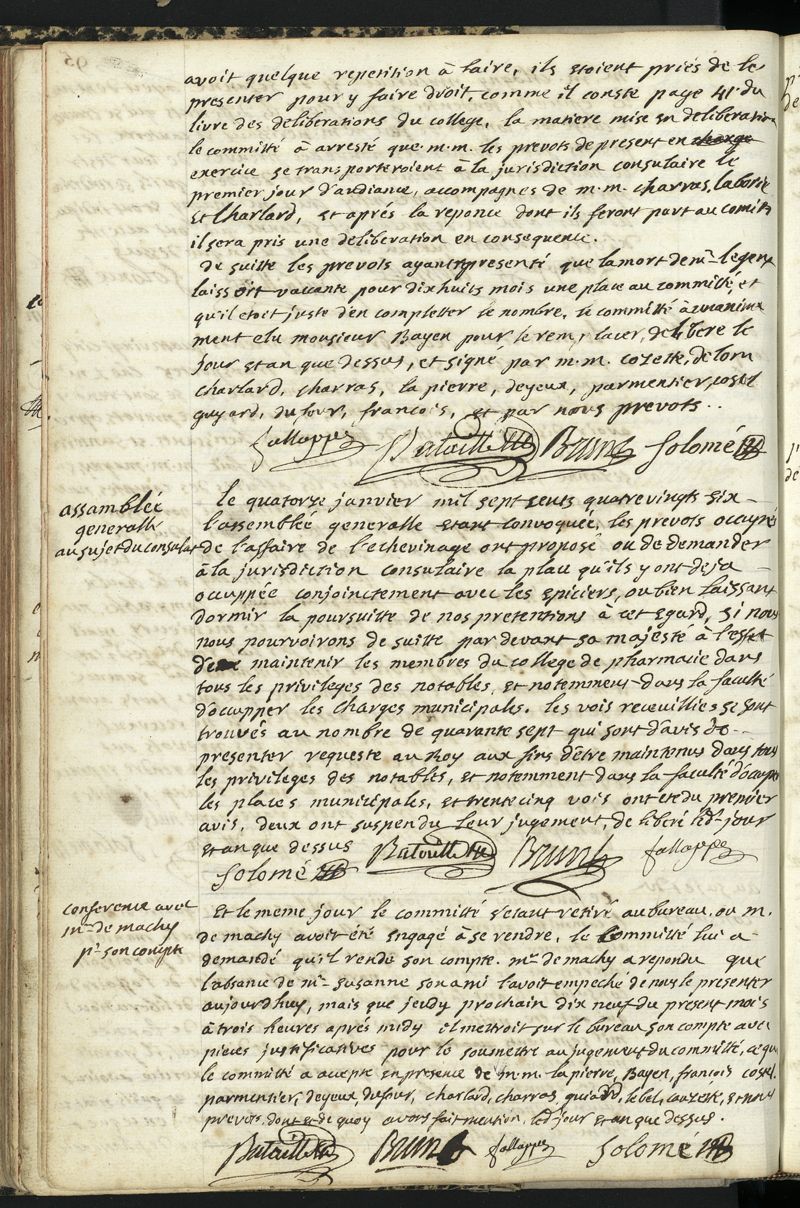 avoit quelque repetition à faire, ils etoient priés de le
presenter pour y faire droit, comme il conste page 41e du
livre des deliberations du college, la matiere mise en deliberation
le committé à arresté que m.m. les prevots de present en charge
exercice se transporteroient à la jurisdiction consulaire le
premier jour d'audiance, accompagnés de m.m. charras, laborie
et Charlard, et aprés la reponce dont ils feront part au comitté
il sera pris une deliberation en consequence.
de suitte les prevots ayant representé que la mort de mr. legent
laissoit vaccante pour dix huits mois une place au committé, et
qu'il etoit juste d'en completter le nombre, le committé à unanime
ment elu monsieur Bayen pour le remplacer, deliberé le
jour et an que dessus, et signé par m.m. cozette, delorn
charlard, charras, la pierre, deyeux, parmentier, costel
guyard, dufour, françois, et par nous prevots..
fallappe Bataille Brun Solomé
assamblée
generalle
au sujet du consulat
le quatorze janvier mil sept cents quatre vingts six
l'assemblée generalle etant convoquée, les prevots occupés
de l'affaire de l'echevinage ont proposé ou de demander
à la jurisdiction consulaire la place qu'ils y ont deja
occuppée conjoinctement avec les epiciers, ou bien laissant
dormir la poursuitte de nos pretentions à cet egard, si nous
nous pourvoirons de suitte par devant sa majesté à l'effet
de maintenir les membres du college de pharmacie dans
tous les privileges des notables, et notemment dans la faculté
d'occupper les charges municipales. les vois receuillies se sont
trouvés au nombre de quarante sept qui sont d'avis de
presenter requeste au Roy aux fins d'être maintenus dans tous
les privileges des notables, et notemment dans la faculté d'occuper
les places municipales, et trente cinq vois ont eté du premier
avis, deux ont suspendu leur jugement, deliberé led. jour
et an que dessus Bataille Brun fallappe
Solomé
conference avec
mr. de machy
pr. son compte
Et le meme jour le committé s'etant retiré au bureau, ou m.
de machy avoit été engagé à se rendre, le committé lui a
demandé qu'il rende son compte. mr. de machy a repondu que
l'absance de mr. susanne son ami l'avoit empeché de nous le presenter
aujourdhuy, mais que jeudy prochain dix neuf du present mois
à trois heures aprés midy il mettroit sur le bureau son compte avec
pieces justificatives pour le soumettre au jugement du committé, ce que
le committé a accepté en presence de m.m. la pierre, Bayen, françois costel,
parmentier, deyeux, dufour, charlard, charras, guiard, lebel, cauzette, et nous
prevots, dont et de quoy avons fait mention, led. jour et an que dessus.
Bataille Brun fallappe Solomé